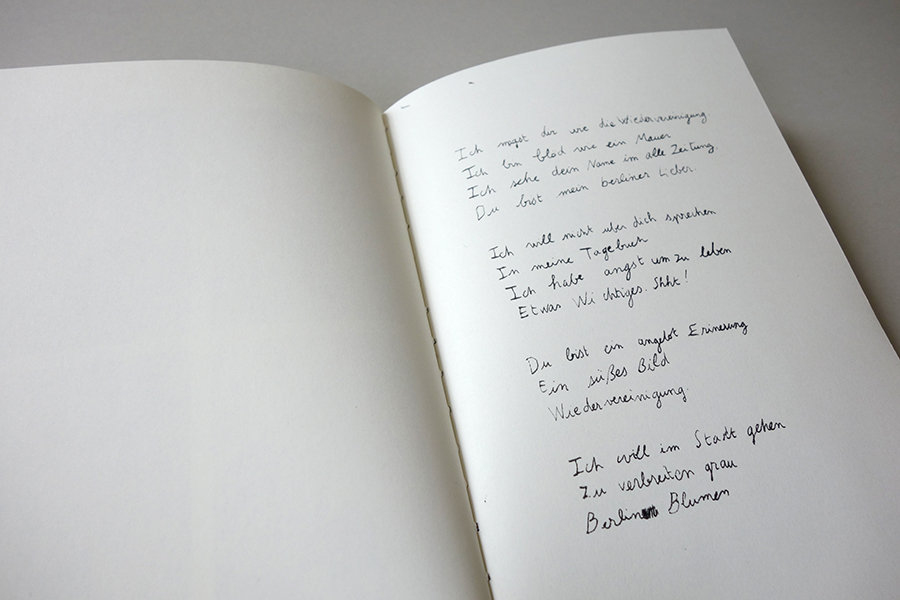 Ich magst der wie die Wiedervereinigung
Ich bin blod wie ein Mauer
Ich sehe dein Name im alle Zeitung.
Du bist mein berliner Lieber.
Ich will nicht uber dich sprechen
In meine Tagebuch
Ich habe angst um zu leben
Etwas Wichtiges. Shht!
Du bist ein angelot Erinerung
Ein süßes Bild
Wiedervereinigung.
Ich will im Stadt gehen
Zu verbreiten grau
Berlin Blumen